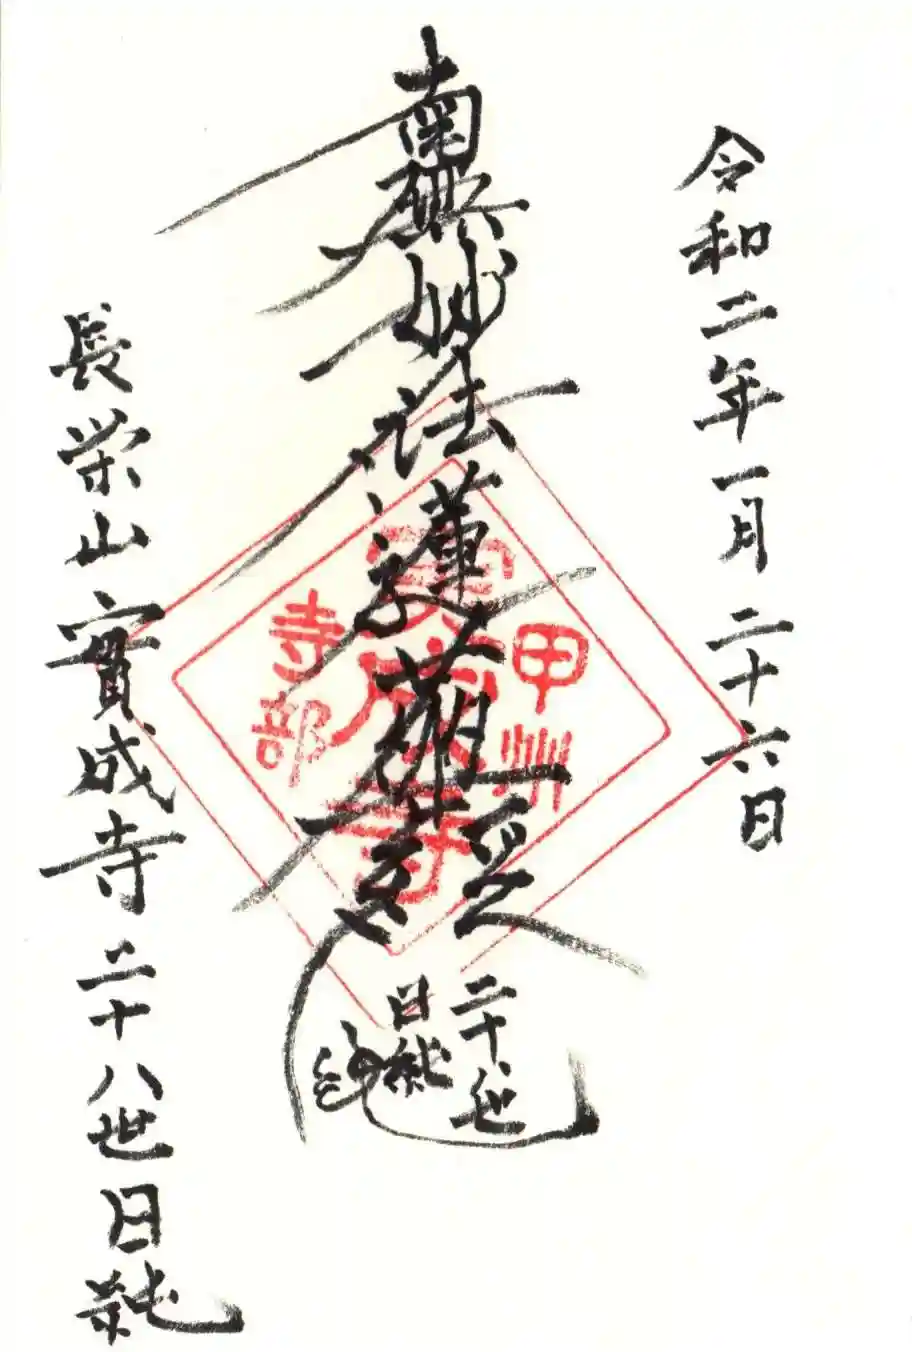 令和二年一月二十六日
南無妙法蓮華経
二十八世
日純
甲州
實成寺
寺部
長栄山實成寺二十八世日純